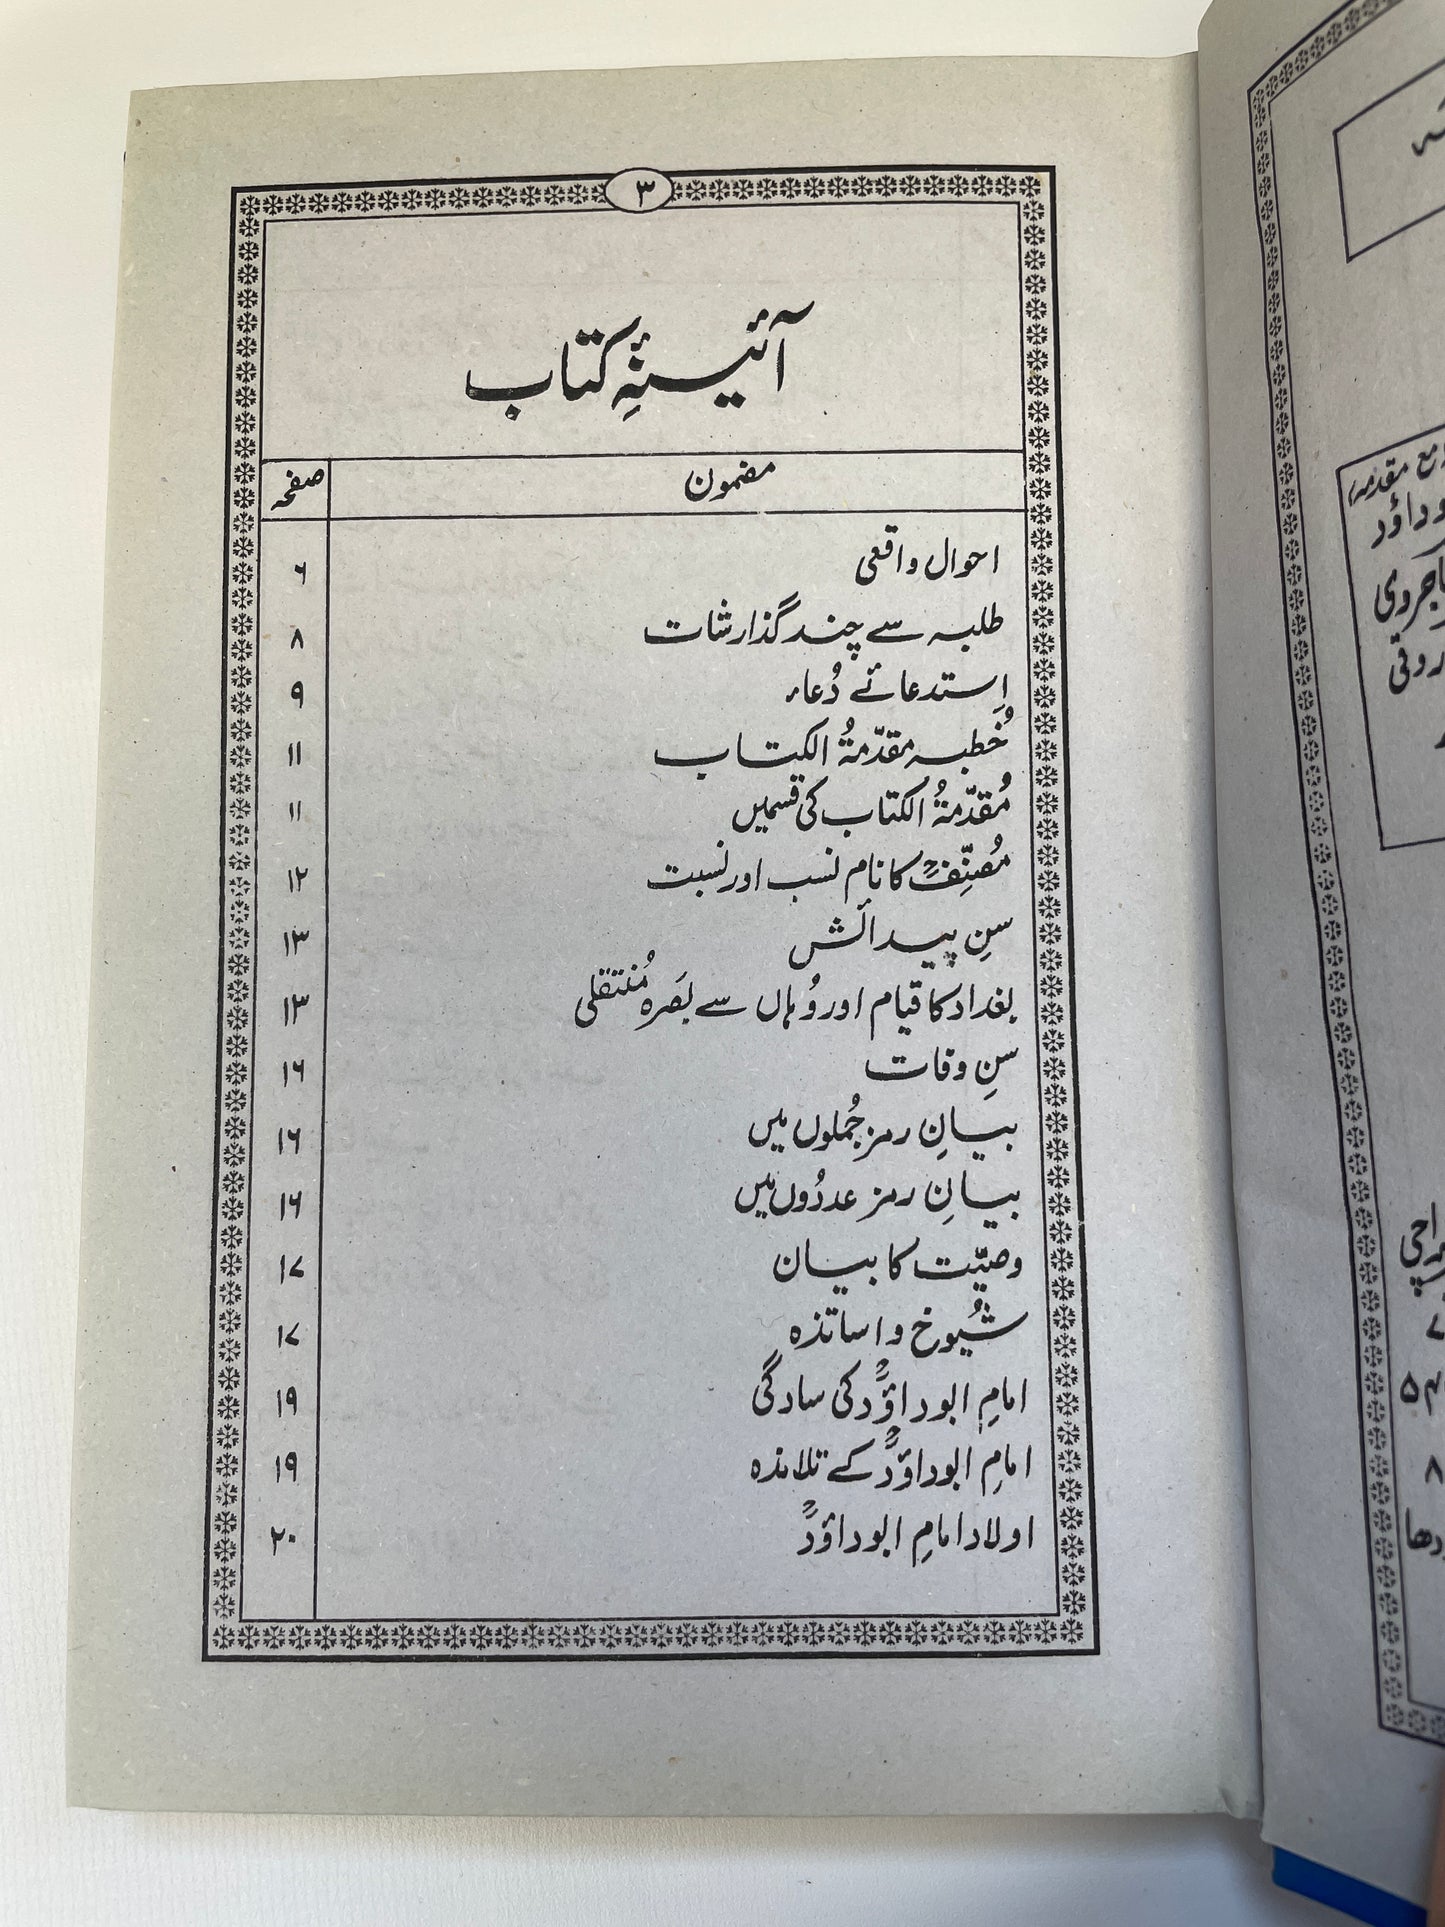 ۳
آئینۂِ کتاب
مضمون صفحہ
احوال واقعی ۶
طلبہ سے چند گذارشات ۸
اِستدعائے دُعاء ۹
خُطبہ مقدّمۃُ الکتاب ۱۱
مُقدّمۃُ الکتاب کی قسمیں ۱۱
مُصنِّفؒ کا نام نسب اور نسبت ۱۲
سنِ پیدائش ۱۳
بغداد کا قیام اور وُہاں سے بصَرہ مُنتقلی ۱۳
سنِ وفات ۱۶
بیانِ رمز جُملوں میں ۱۶
بیانِ رمز عددُوں میں ۱۶
وصیّت کا بیان ۱۷
شیُوخ و اساتذہ ۱۷
امامِ ابوداؤدؒ کی سادگی ۱۹
امامِ ابوداؤدؒ کے تلامذہ ۱۹
اولاد امامِ ابوداؤدؒ ۲۰
مع مقدمہ
داؤد